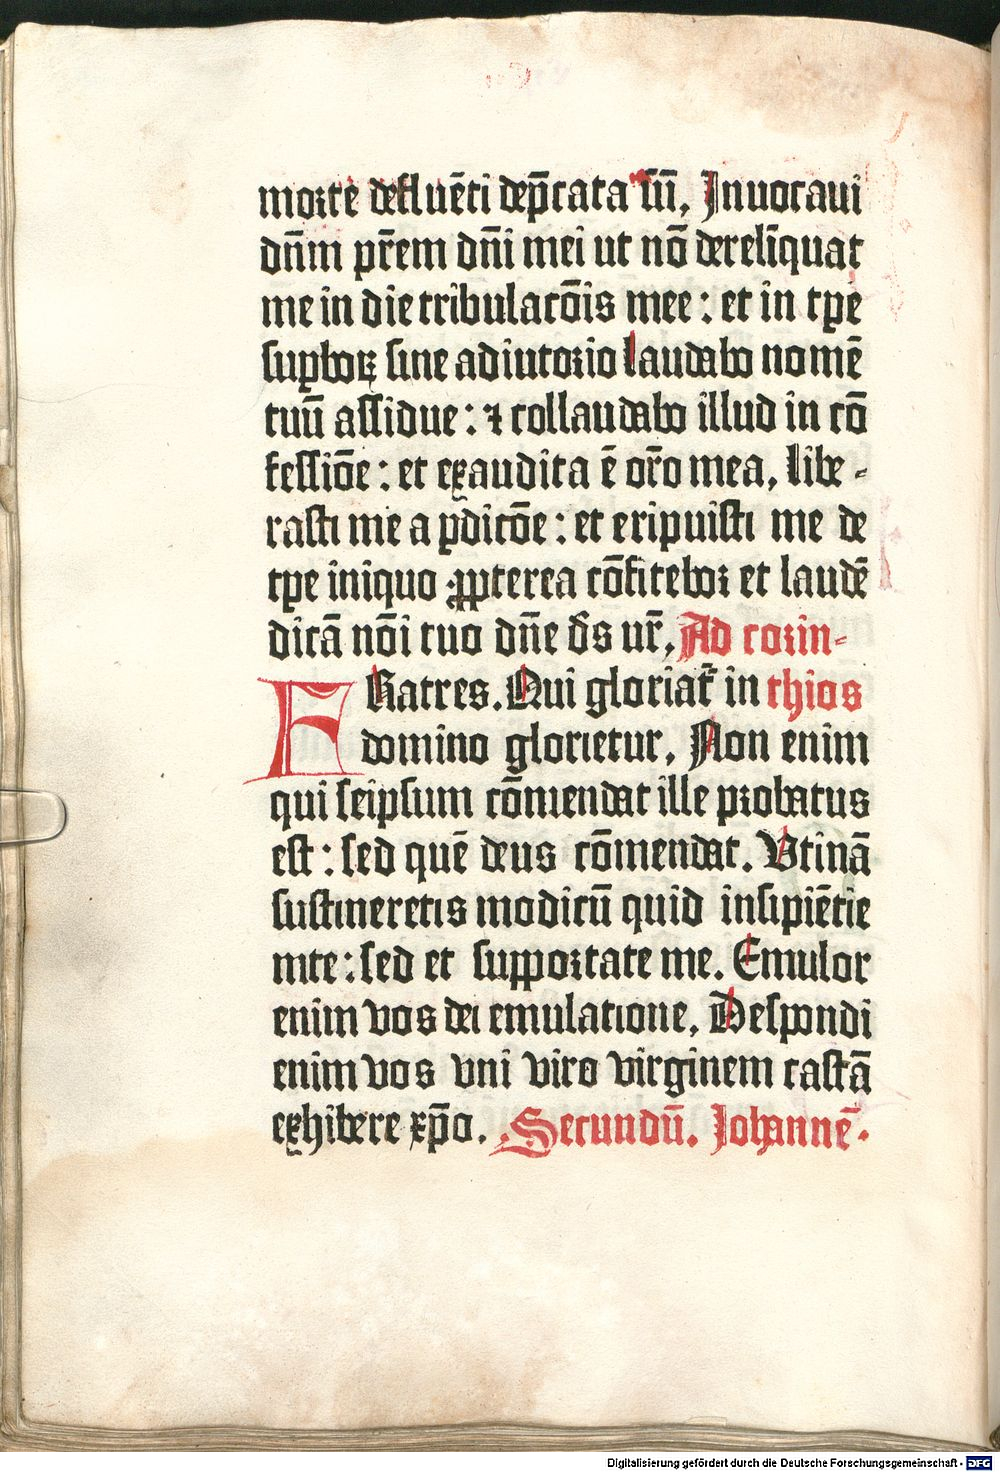 morte defluēti dep̄cata sū. Inuocaui
dn̄m pr̄em dn̄i mei ut nō derelīquat
me in die tribulacōis mee : et in tꝑe
suꝑboꝝ sine adiutorio laudabo nomē
tuū assidue : ⁊ collaudabo illud in cō
fessiōe : et exaudita ē or̄o mea. libe-
rasti me a ꝑdicōe : et eripuisti me de
tꝑe iniquo ꝓpterea cōfitebor et laudē
dicā nōi tuo dn̄e ds̄ ur̄. Ad corin-
FRatres. Qui gloriat᷑ in thios
domino glorietur. Non enim
qui seipsum cōmendat ille probatus
est : sed quē deus cōmendat. Vtinā
sustineretis modicū quid insipiētie
mte : sed et supportate me. Emulor
enim vos dei emulatione. Despondi
enim vos vni viro virginem castā
exhibere xp̄o. Secundū. Johannē.
Digitalisierung gefördert durch die Deutsche Forschungsgemeinschaft - DFG